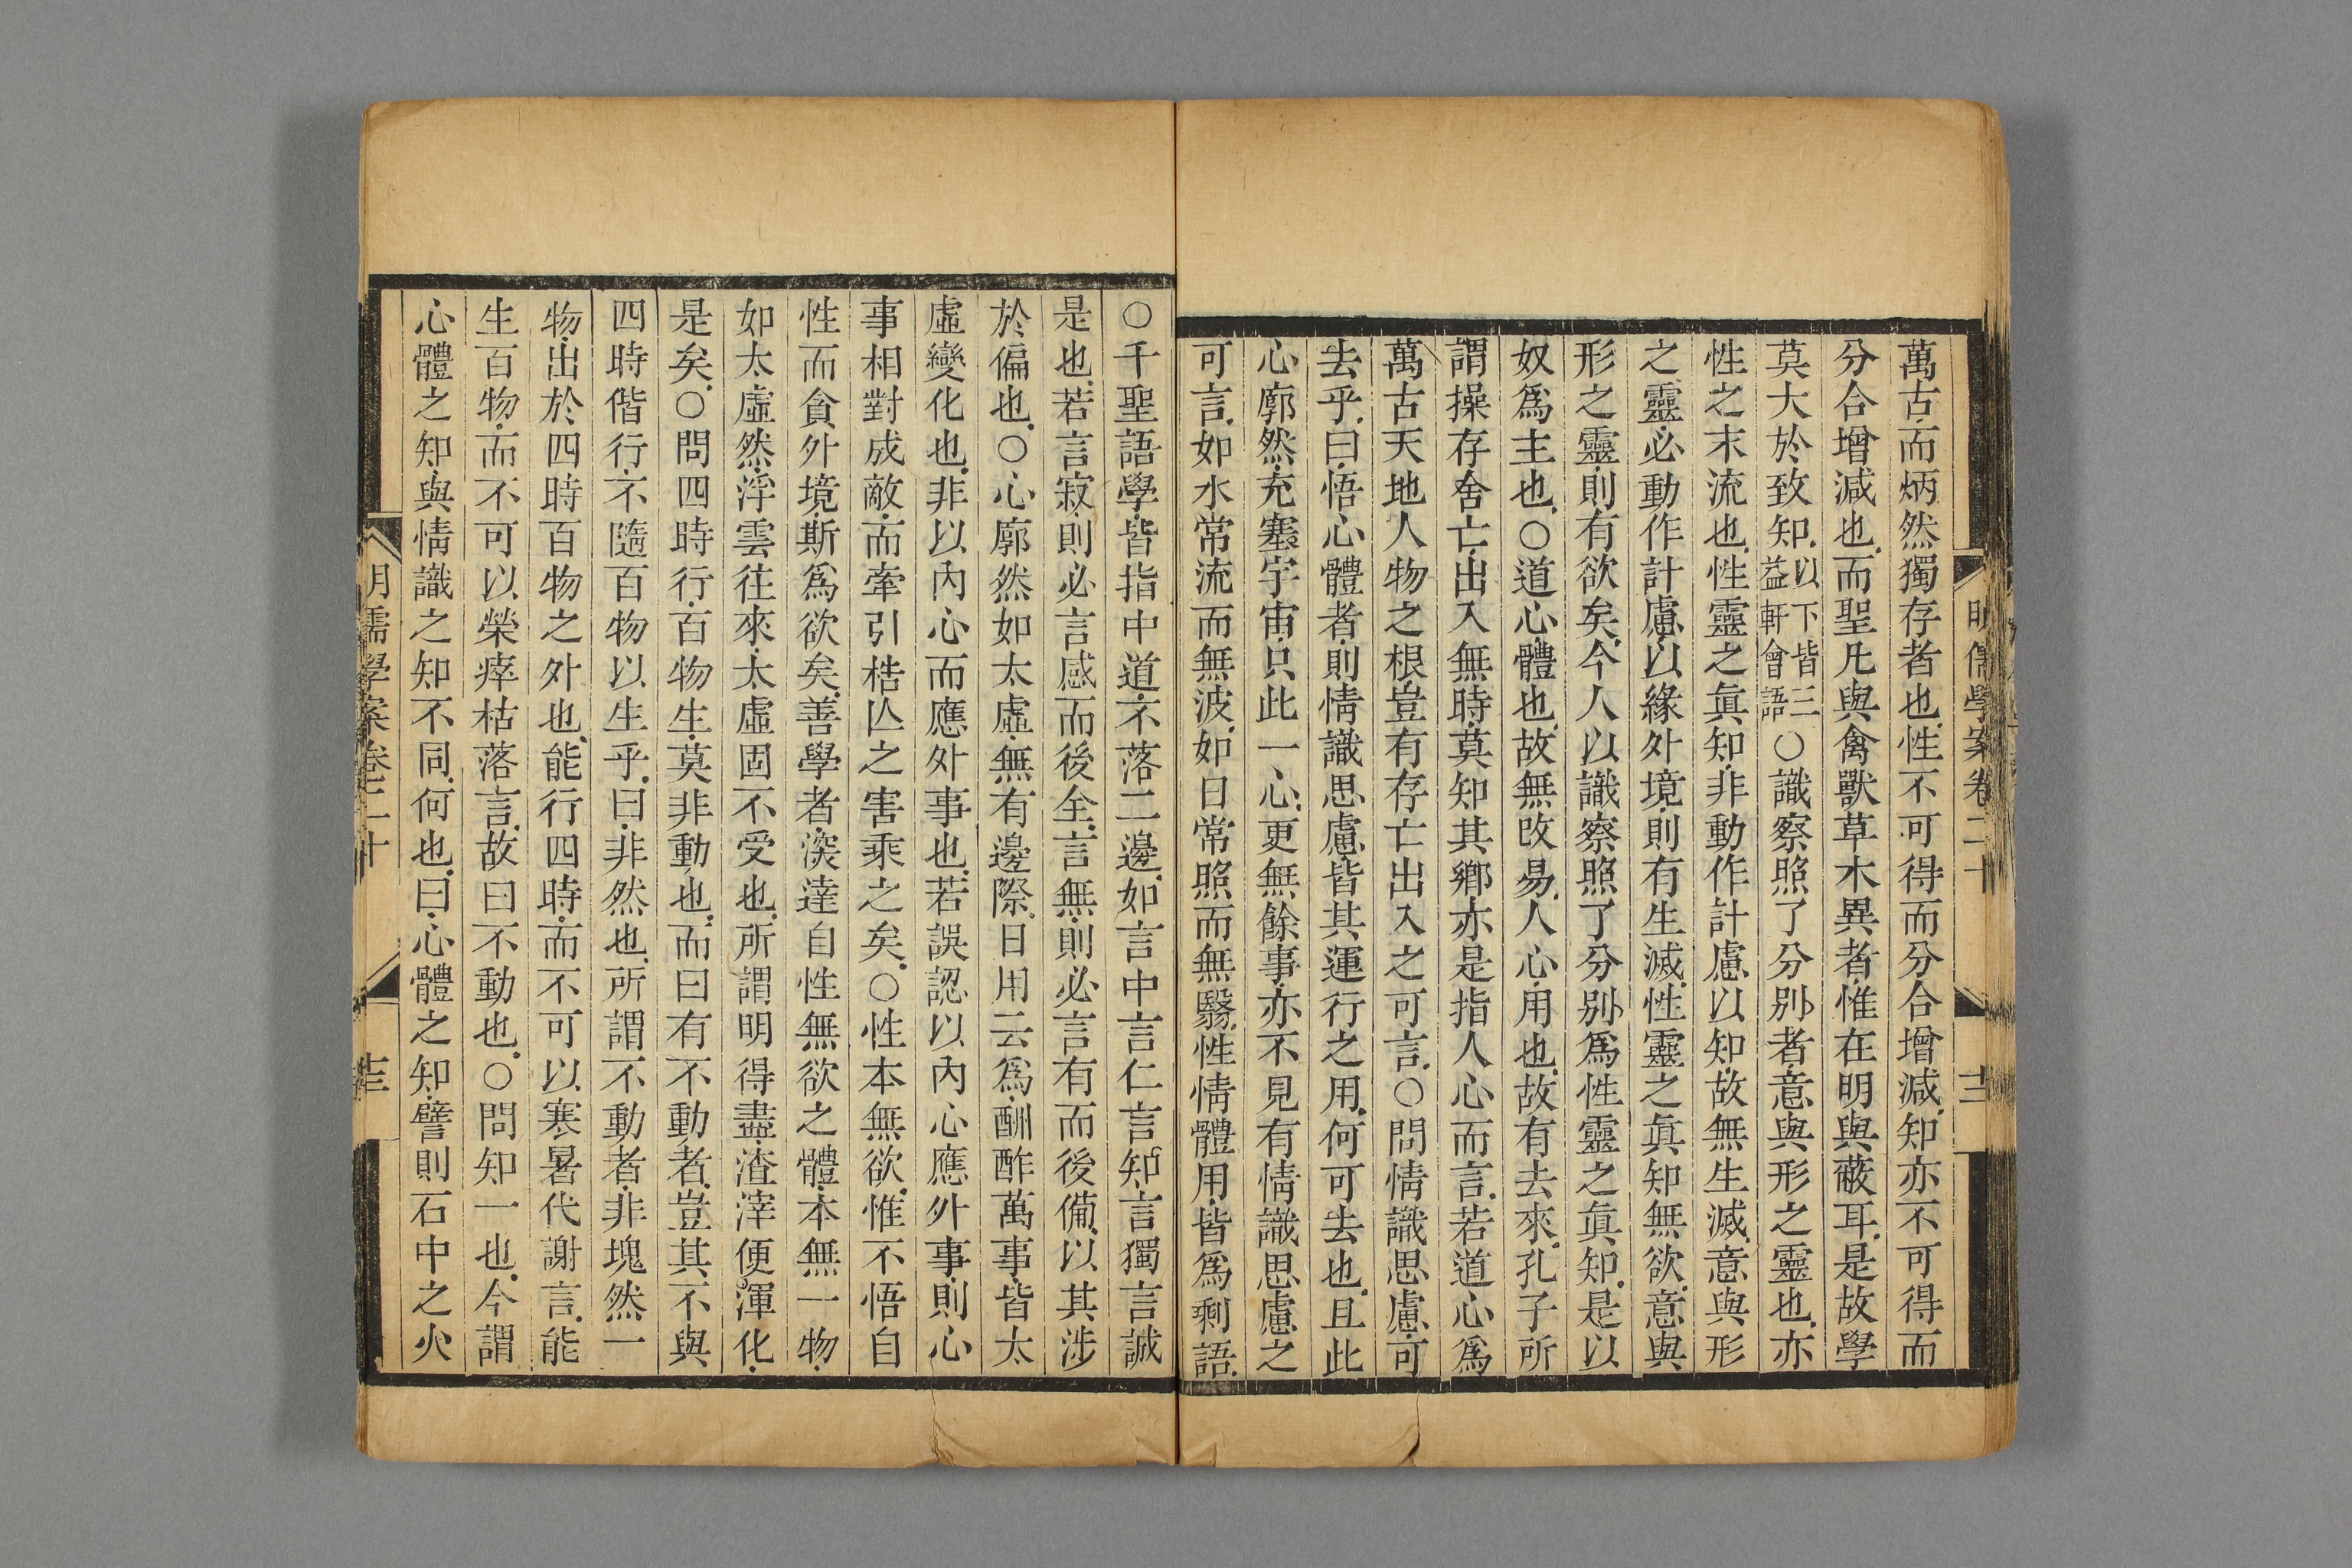 明儒學案卷二十
十二
萬古而炳然獨存者也性不可得而分合增減知亦不可得而
分合增減也而聖凡與禽獸草木異者惟在明與蔽耳是故學
莫大於致知以下皆三益軒會語○識察照了分別者意與形之靈也亦
性之末流也性靈之眞知非動作計慮以知故無生滅意與形
之靈必動作計慮以緣外境則有生滅性靈之眞知無欲意與
形之靈則有欲矣今人以識察照了分別爲性靈之眞知是以
奴爲主也○道心體也故無改易人心用也故有去來孔子所
謂操存舍亡出入無時莫知其鄉亦是指人心而言若道心爲
萬古天地人物之根豈有存亡出入之可言○問情識思慮可
去乎曰悟心體者則情識思慮皆其運行之用何可去也且此
心廓然充塞宇宙只此一心更無餘事亦不見有情識思慮之
可言如水常流而無波如日常照而無翳性情體用皆爲剩語
○千聖語學皆指中道不落二邊如言中言仁言知言獨言誠
是也若言寂則必言感而後全言無則必言有而後備以其涉
於偏也○心廓然如太虛無有邊際日用云爲酬酢萬事皆太
虛變化也非以內心而應外事也若誤認以內心應外事則心
事相對成敵而牽引梏亾之害乘之矣○性本無欲惟不悟自
性而貪外境斯爲欲矣善學者深達自性無欲之體本無一物
如太虛然浮雲往來太虛固不受也所謂明得盡渣滓便渾化
是矣○問四時行百物生莫非動也而曰有不動者豈其不與
四時偕行不隨百物以生乎曰非然也所謂不動者非塊然一
物出於四時百物之外也能行四時而不可以寒暑代謝言能
生百物而不可以榮瘁枯落言故曰不動也○問知一也今謂
心體之知與情識之知不同何也曰心體之知譬則石中之火
明儒學案卷二十
十三